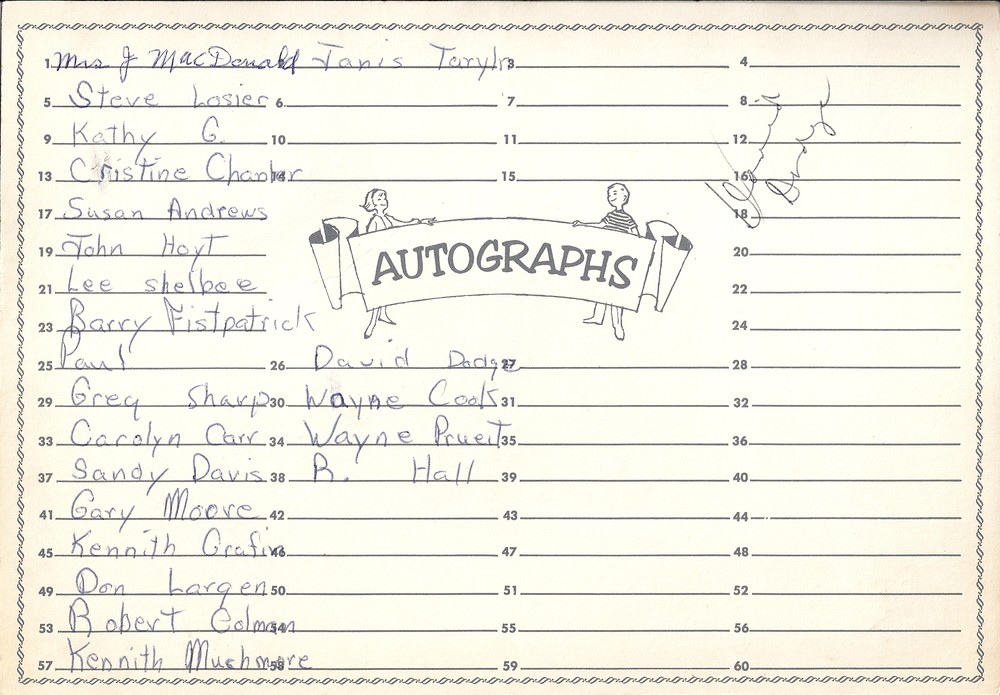 1 Mrs J MacDonald Janis Taryln 3 4
5 Steve Losier 6 7 8
9 Kathy G. 10 11 12
13 Cristine Chanter 14 15 16
17 Susan Andrews 18
19 John Hoyt 20
21 Lee shelbee 22
AUTOGRAPHS
23 Barry Fistpatrick 24
25 Paul 26 David Dodge 27 28
29 Greg Sharp 30 Wayne Cook 31 32
33 Carolyn Carr 34 Wayne Prueit 35 36
37 Sandy Davis 38 R. Hall 39 40
41 Gary Moore 42 43 44
45 Kennith Grafin 46 47 48
49 Don Largen 50 51 52
53 Robert Colman 54 55 56
57 Kennith Muchmore 58 59 60